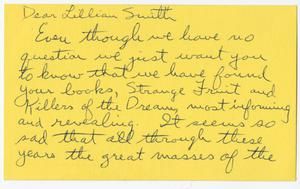 Dear Lillian Smith
Even though we have no
question we just want you
to know that we have found
your books, Strange Fruit and
Killers of the Dream, most informing
and revealing. It seems so
sad that all through these
years the great masses of the